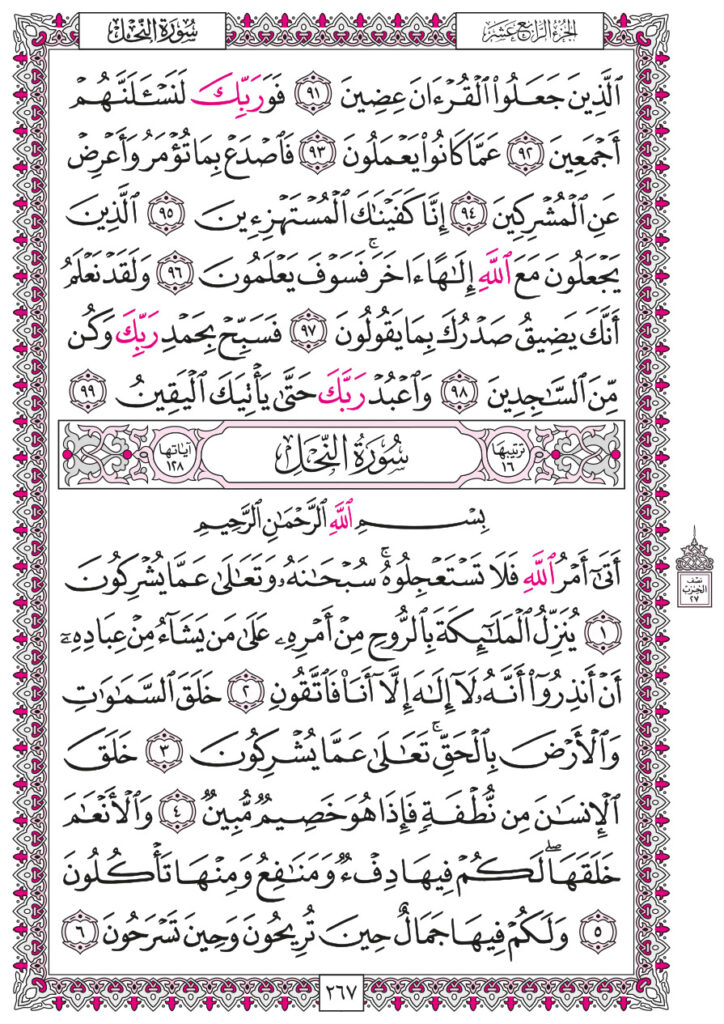 الجزء الرابع عشر
سورة النحل
ٱلَّذِينَ جَعَلُوا۟ ٱلْقُرْءَانَ عِضِينَ ٩١ فَوَرَبِّكَ لَنَسْـَٔلَنَّهُمْ
أَجْمَعِينَ ٩٢ عَمَّا كَانُوا۟ يَعْمَلُونَ ٩٣ فَٱصْدَعْ بِمَا تُؤْمَرُ وَأَعْرِضْ
عَنِ ٱلْمُشْرِكِينَ ٩٤ إِنَّا كَفَيْنَٰكَ ٱلْمُسْتَهْزِءِينَ ٩٥ ٱلَّذِينَ
يَجْعَلُونَ مَعَ ٱللَّهِ إِلَٰهًا ءَاخَرَ ۚ فَسَوْفَ يَعْلَمُونَ ٩٦ وَلَقَدْ نَعْلَمُ
أَنَّكَ يَضِيقُ صَدْرُكَ بِمَا يَقُولُونَ ٩٧ فَسَبِّحْ بِحَمْدِ رَبِّكَ وَكُن
مِّنَ ٱلسَّٰجِدِينَ ٩٨ وَٱعْبُدْ رَبَّكَ حَتَّىٰ يَأْتِيَكَ ٱلْيَقِينُ ٩٩
ترتيبها ١٦ سُورَةُ النَّحْلِ آياتها ١٢٨
بِسْمِ ٱللَّهِ ٱلرَّحْمَٰنِ ٱلرَّحِيمِ
أَتَىٰٓ أَمْرُ ٱللَّهِ فَلَا تَسْتَعْجِلُوهُ ۚ سُبْحَٰنَهُۥ وَتَعَٰلَىٰ عَمَّا يُشْرِكُونَ
١ يُنَزِّلُ ٱلْمَلَٰٓئِكَةَ بِٱلرُّوحِ مِنْ أَمْرِهِۦ عَلَىٰ مَن يَشَآءُ مِنْ عِبَادِهِۦٓ
أَنْ أَنذِرُوٓا۟ أَنَّهُۥ لَآ إِلَٰهَ إِلَّآ أَنَا۠ فَٱتَّقُونِ ٢ خَلَقَ ٱلسَّمَٰوَٰتِ
وَٱلْأَرْضَ بِٱلْحَقِّ ۚ تَعَٰلَىٰ عَمَّا يُشْرِكُونَ ٣ خَلَقَ
ٱلْإِنسَٰنَ مِن نُّطْفَةٍ فَإِذَا هُوَ خَصِيمٌ مُّبِينٌ ٤ وَٱلْأَنْعَٰمَ
خَلَقَهَا ۗ لَكُمْ فِيهَا دِفْءٌ وَمَنَٰفِعُ وَمِنْهَا تَأْكُلُونَ
٥ وَلَكُمْ فِيهَا جَمَالٌ حِينَ تُرِيحُونَ وَحِينَ تَسْرَحُونَ ٦
نصف
الحزب
٢٧
٢٦٧